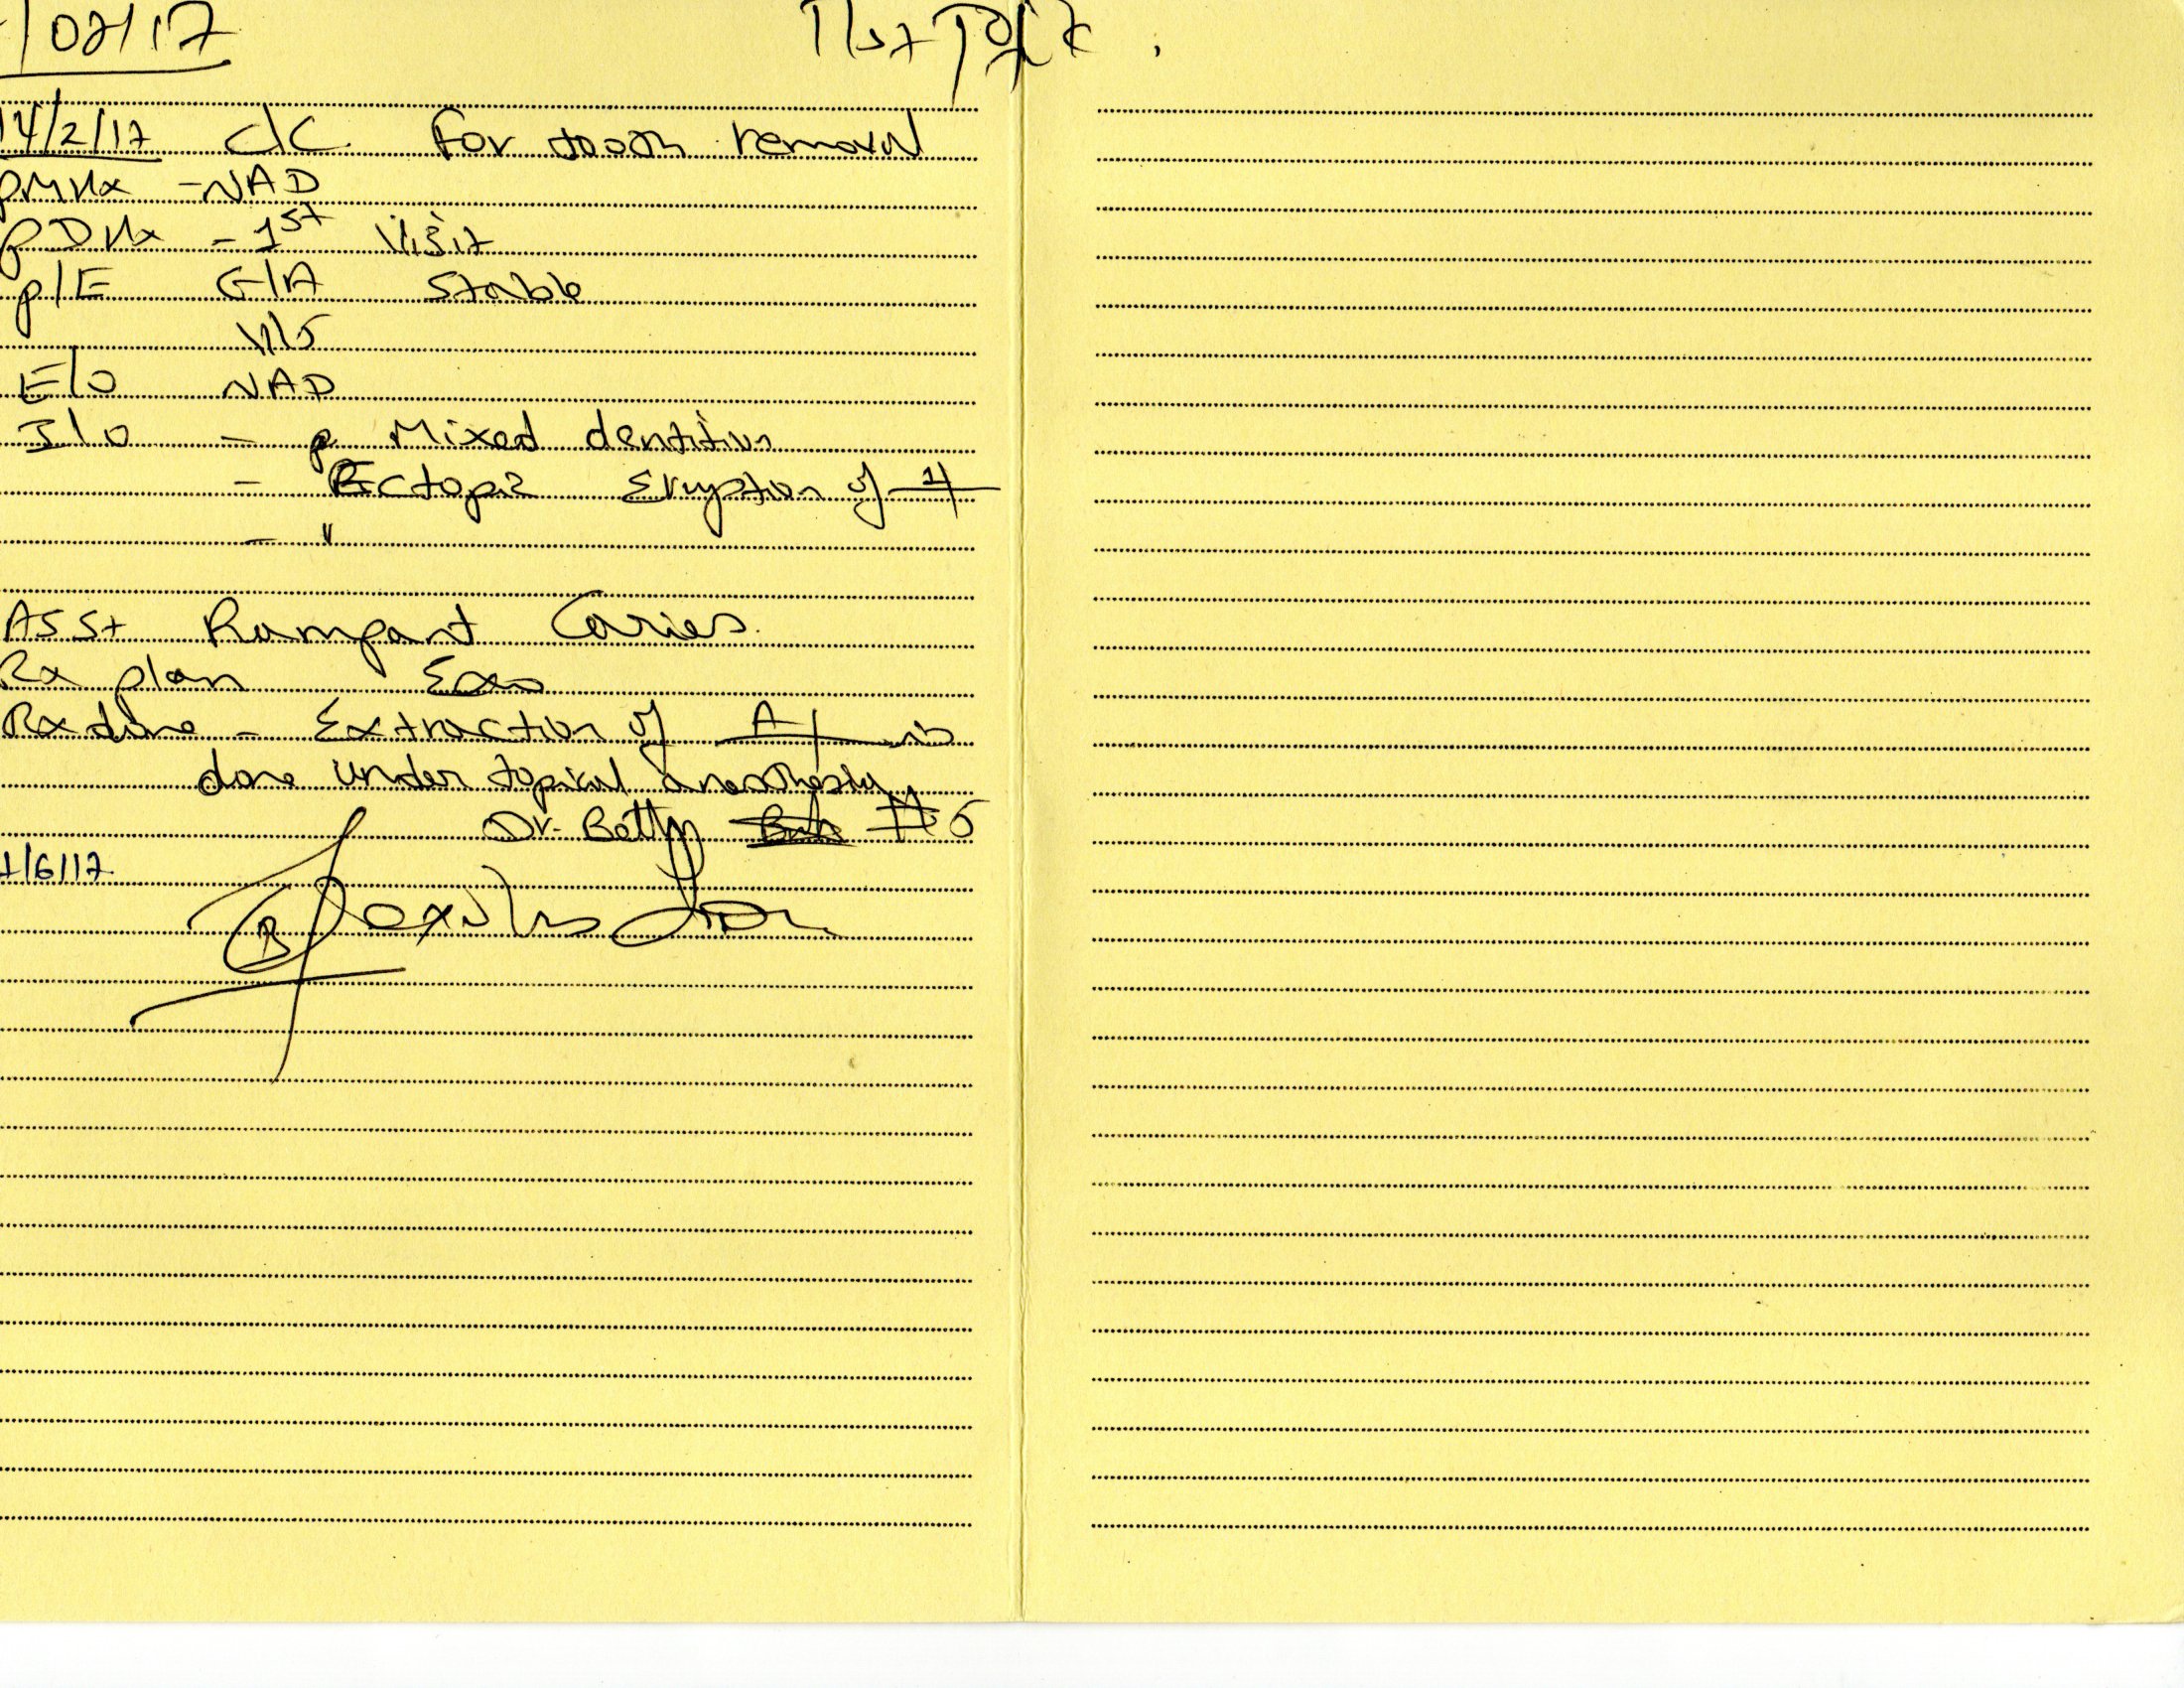 /02/17
14/2/17 C/C For tooth removal
PMHx - NAD
PDHx - 1st Visit
P/E G/A Stable
V/S
E/O NAD
I/O - Mixed dentition
- Ectopic Eruption of 1
- "
Asst Rampant Caries
Rx plan Exo
Rx done - Extraction of A is
done under topical anesthesia
Dr. Betty #6
1/6/17